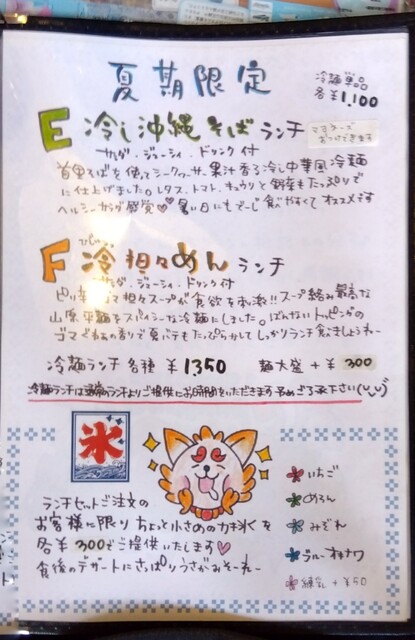 夏期限定
冷麺単品
各¥1,100
E 冷し沖縄そばランチ
マヨネーズ
おつけできます
サラダ・ジューシィ・ドリンク付
首里そばを使ってシークヮーサー果汁香る冷し中華風冷麺
に仕上げました。レタス、トマト、キュウリと野菜もたっぷりで
ヘルシーサラダ感覚♡♡暑い日にもでーじ食べやすくてオススメです
F 冷担々めんランチ
ひや
サラダ・ジューシィ・ドリンク付
ピリ辛ゴマ担々スープが食欲を刺激!!スープ絡み最高な
山原平麺をスパイシーな冷麺にしました。ぱんないトッピングの
ゴマと の香りで夏バテもたっぴらかしてしっかりランチ食みましょうねー
冷麺ランチ 各種 ¥1350 麺大盛 + ¥300
冷麺ランチは通常のランチよりご提供にお時間をいただきます 予めご了承下さい(U_U)
氷
ランチセットご注文の
お客様に限り ちょっと小さめのカキ氷を
各¥300でご提供いたします♡
食後のデザートにさっぱりうさがみそーれー
いちご
めろん
みぞれ
ブルーオキナワ
練乳 + ¥50